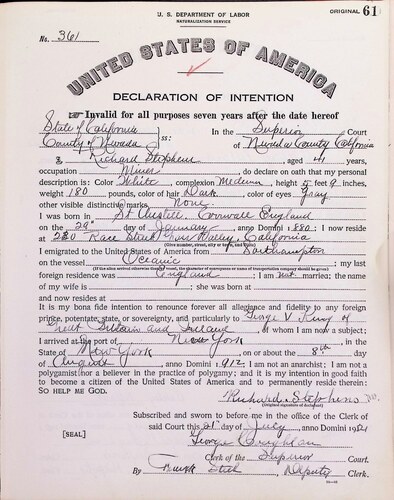 U. S. DEPARTMENT OF LABOR
NATURALIZATION SERVICE
ORIGINAL 61
No. 361
UNITED STATES OF AMERICA
DECLARATION OF INTENTION
☞ Invalid for all purposes seven years after the date hereof
State of California
County of Nevada } ss:
In the Superior Court
of Nevada County California
I, Richard Stephens, aged 41 years,
occupation Miner, do declare on oath that my personal
description is: Color White, complexion Medium, height 5 feet 9 inches,
weight 180 pounds, color of hair Dark, color of eyes Gray
other visible distinctive marks None.
I was born in St Austell, Cornwall England
on the 29th day of January, anno Domini 1880; I now reside
at 230 Race Street Grass Valley, California
(Give number, street, city or town, and State)
I emigrated to the United States of America from Southampton
on the vessel Oceanic; my last
(If the alien arrived otherwise than by vessel, the character of conveyance or name of transportation company should be given)
foreign residence was England; I am not married; the name
of my wife is; she was born at
and now resides at
It is my bona fide intention to renounce forever all allegiance and fidelity to any foreign
prince, potentate, state, or sovereignty, and particularly to George V King of
Great Britain and Ireland, of whom I am now a subject;
I arrived at the port of New York, in the
State of New York, on or about the 8th day
of August, anno Domini 1912; I am not an anarchist; I am not a
polygamist nor a believer in the practice of polygamy; and it is my intention in good faith
to become a citizen of the United States of America and to permanently reside therein:
SO HELP ME GOD.
Richard Stephens
(Original signature of declarant)
Subscribed and sworn to before me in the office of the Clerk of
[SEAL]
said Court this 21st day of July, anno Domini 1921
George Coughlan
Clerk of the Superior Court.
By Steel, Deputy Clerk.